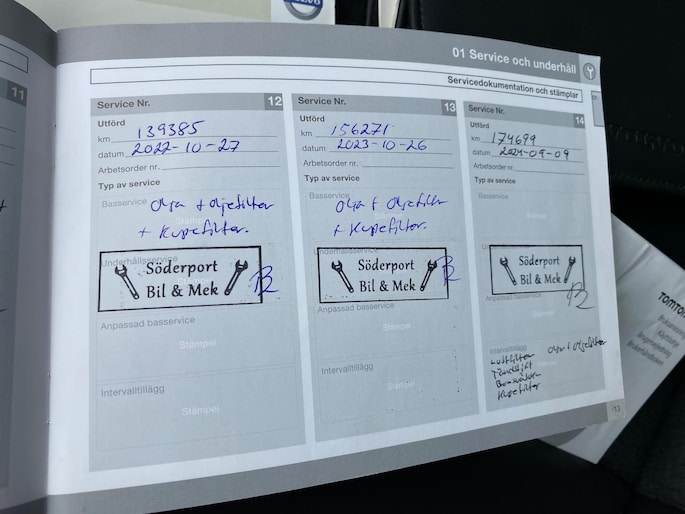 VOLVO
01 Service och underhåll
Servicedokumentation och stämplar
11
Service Nr. 12
Utförd
km 139385
datum 2022-10-27
Arbetsorder nr.
Typ av service
Basservice
Olja + oljefilter
+ Kupefilter.
Stämpel
Underhållsservice
Söderport
Bil & Mek
Anpassad basservice
Stämpel
Intervalltillägg
Stämpel
Service Nr. 13
Utförd
km 156271
datum 2023-10-26
Arbetsorder nr.
Typ av service
Basservice
Olja + oljefilter
+ Kupefilter.
Stämpel
Underhållsservice
Söderport
Bil & Mek
Anpassad basservice
Stämpel
Intervalltillägg
Stämpel
Service Nr. 14
Utförd
km 174699
datum 2024-09-09
Arbetsorder nr.
Typ av service
Basservice
Stämpel
Söderport
Bil & Mek
Anpassad basservice
Stämpel
Intervalltillägg
Luftfilter Olja + oljefilter
Tändstift
Kupefilter
13
TOMTOM